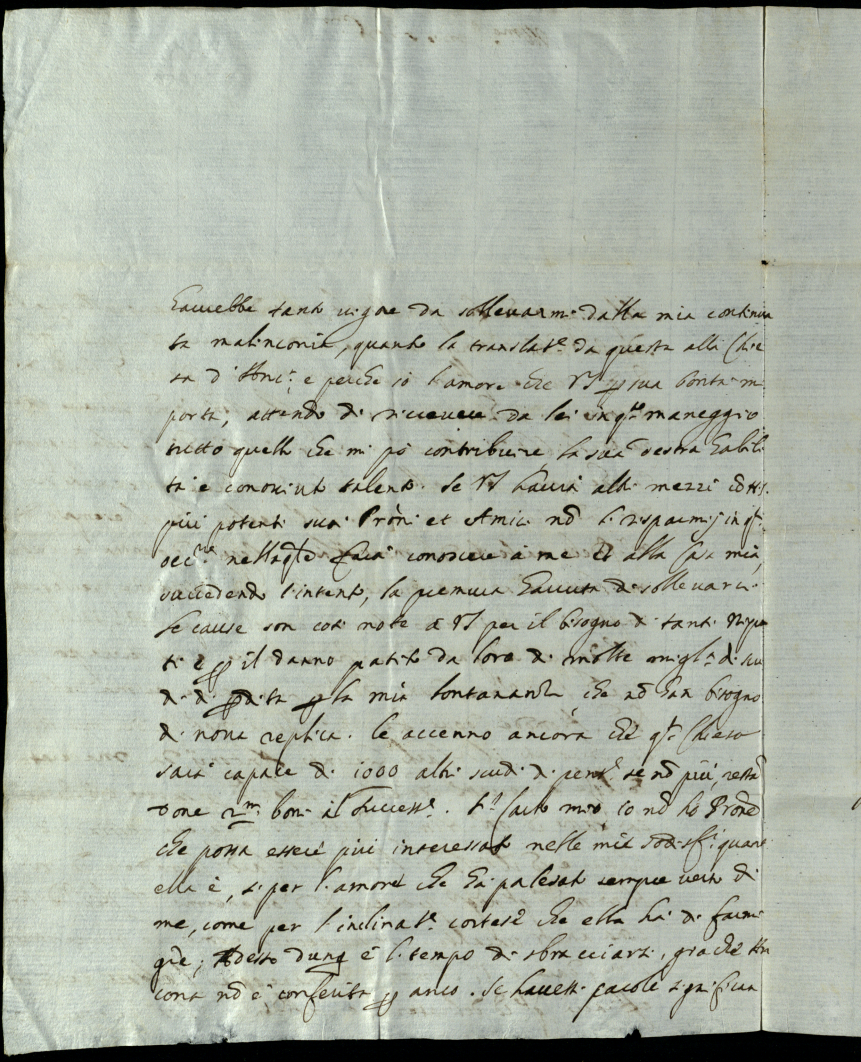 haurebbe tanto uigore da solleuarmi dalla mia continua
ta malinconia, quanto la translat.e da questa alla Chie
sa d' e perche so l'amore che VS p sua bontà mi
porta, attendo di riceuere da lei in q.to maneggio
tutto quello che mi pò contribuire la sua destra habili
tà e conosciuto talento. Se VS hauerà altri mezzi
più potenti suoi Pròni et Amici nõ li risparmij in q.ta
occ.ne farà conoscere à me et alla Casa mia,
succedendo l'intento, la premura hauuta di solleuarci.
Le cause son così note à VS per il bisogno di tanti Nipo
ti e p il danno patito da loro di molte migl.a di scu
di di p la mia lontananza, che nõ han bisogno
di noua replica. Le accenno ancora che q.ta Chiesa
sarà capace di 1000 altri scudi di pens.e se nõ più, restã
done buoni al Success.re. S.r Carlo mio, io nõ ho Prone
che possa essere più interessato nelle mie sodisf.ni quanto
ella è, sì per l'amore che ha palesato sempre uerso di
me, come per l'inclinat.e cortese che ella ha di farmi
grẽ; Adesso dunq è il tempo di sbracciarsi, giache An
cona nõ è conferita p anco. Se hauessi parole significan